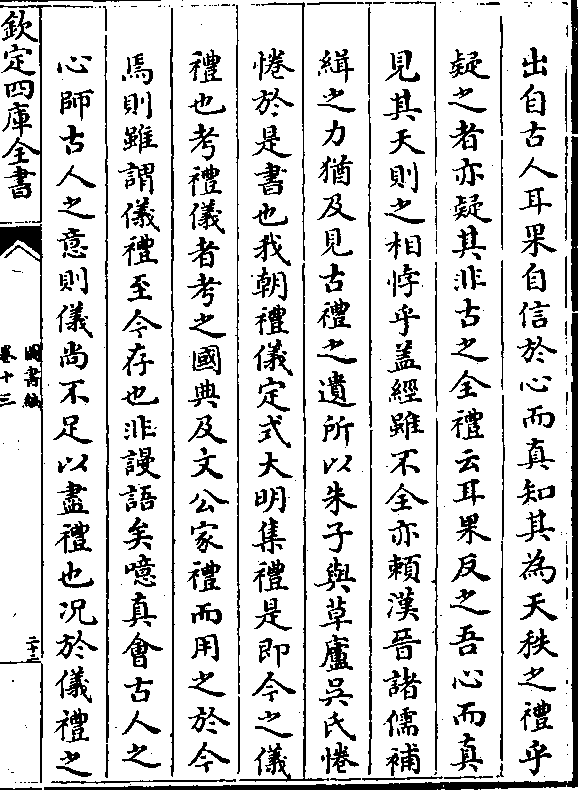 出自古人耳果自信於心而真知其為天秩之禮乎
疑之者亦疑其非古之全禮云耳果反之吾心而真
見其天則之相悖乎盖經雖不全亦頼漢晉諸儒補
緝之力猶及見古禮之遺所以朱子與草廬吳氏惓
惓於是書也我朝禮儀定式大明集禮是即今之儀
禮也考禮儀者考之國典及文公家禮而用之於今
焉則雖謂儀禮至今存也非謾語矣噫真會古人之
心師古人之意則儀尚不足以盡禮也况於儀禮之
欽定四庫全書
圖書編
卷十三
二十二